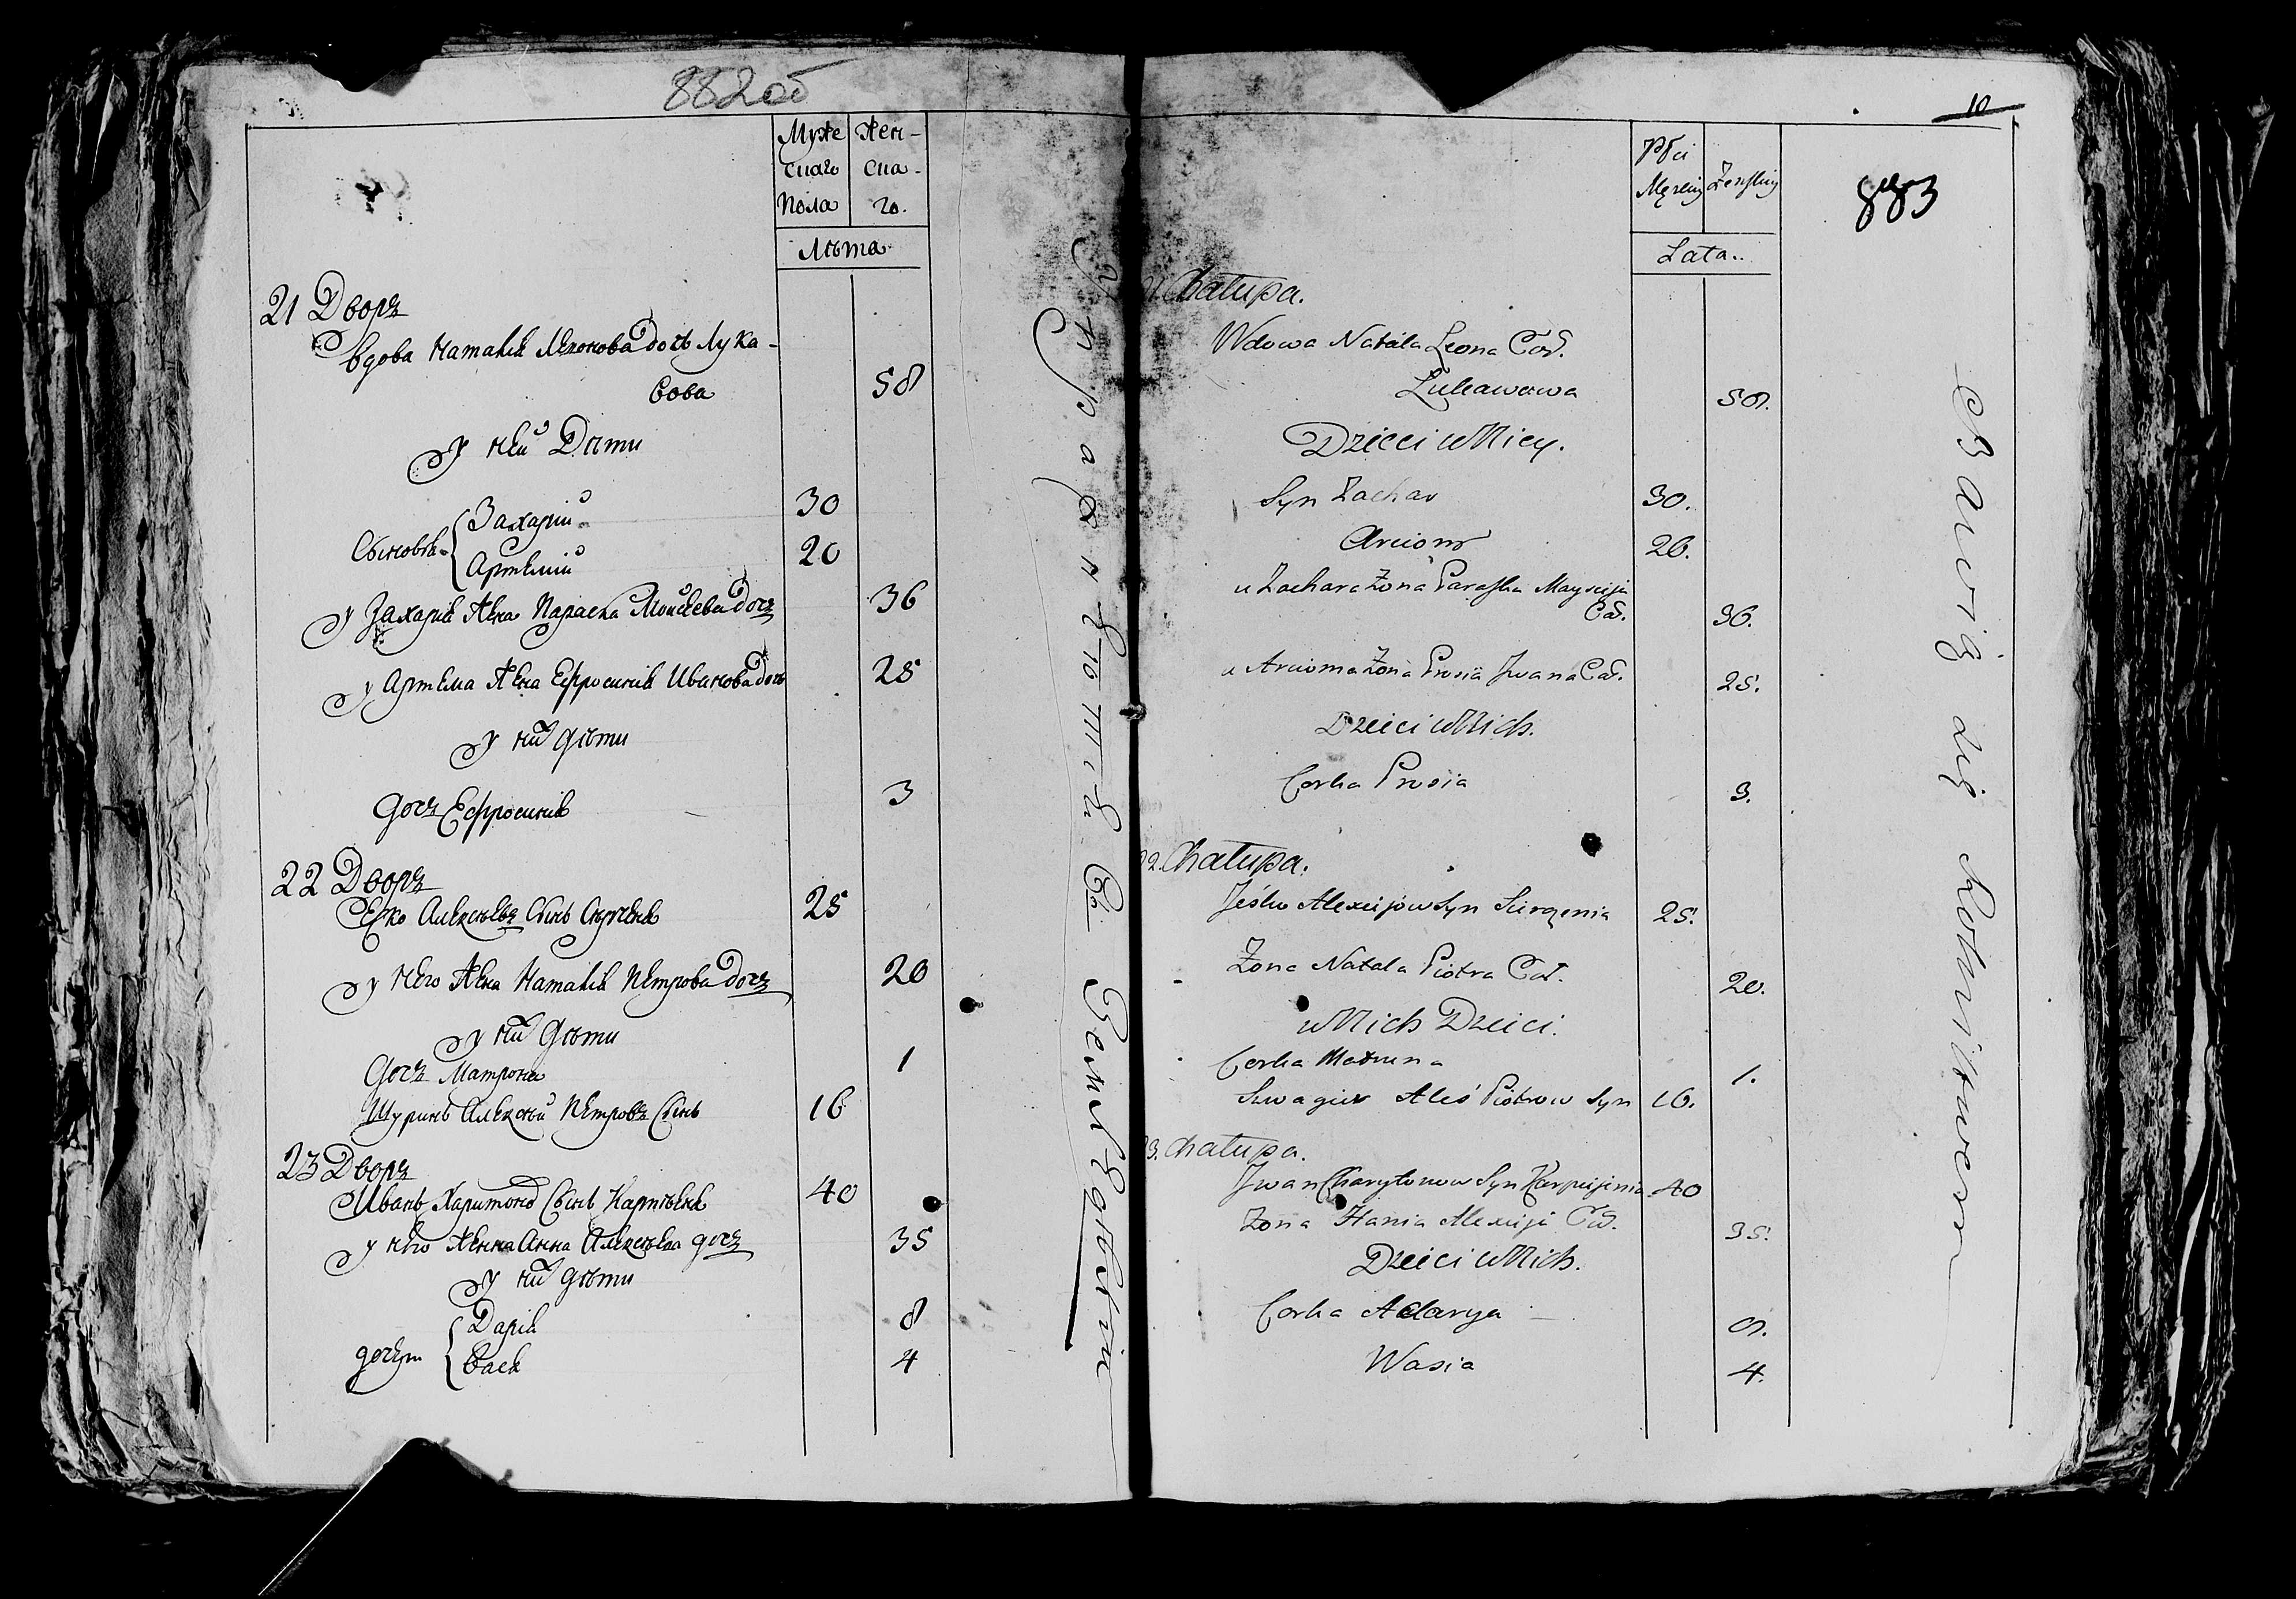 882об
Муже Жен-
скаго ска-
пола го.
Лѣта
21 Дворъ
Вдова Наталія Леонова дочь Лука-
сова 58
У ней Дѣти
Сыновья Захарій 30
Артемій 20
У Захарія Жена Параска Моисеева дочь 36
У Артема Жена Ефросинія Иванова дочь 25
У них дѣти
дочь Ефросинія 3
22 Дворъ
Еско Алексѣевъ Сынъ 25
У него Жена Наталія Петрова дочь 20
У них дѣти
дочь Матрона 1
Шуринъ Алексѣй Петровъ Сынъ 16
23 Дворъ
Иванъ Харитоновъ Сынъ 40
У него Жена Анна Алексѣева дочь 35
У них дѣти
дочери Дарія 8
Вася 4
10
883
Płci
Męzkiy Zenskiy
Lata..
Chałupa.
Wdowa Natala Leona Cór.
Lukawowa 58.
Dzieci u Niey.
Syn Zachar 30.
Arciom 20.
u Zachara Zona Paraska Mayseija
Cór. 36.
u Arcioma Zona Prosia Jwana Cór. 25.
Dzieci u Nich.
Corka Prosia 3.
22. Chałupa.
Jeśko Alexiejow Syn 25.
Zona Natala Piotra Cór. 20.
u Nich Dzieci.
Corka Matruna 1.
Szwagier Aleś Piotrow Syn 16.
23. Chałupa.
Jwan Charytonow Syn 40
Zona Hania Alexieja Cór. 35.
Dzieci u Nich.
Corka Adarya 8.
Wasia 4.